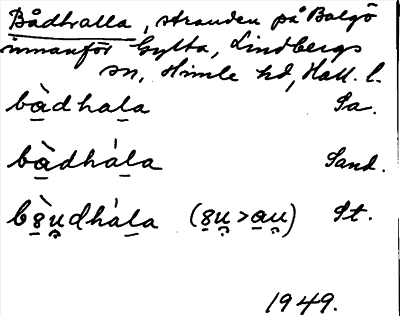 Bådhalla, stranden på Balgö
innanför Gylta, Lindbergs
sn, Himle hd, Hall. l.
bà̱dhal̠a Sa.
bà̱dhál̠a Sand.
b8̱̀u̯dhál̠a (8̱u̯>a̱u̯) St.
1949.